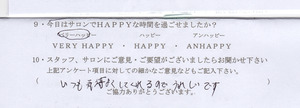 9・今日はサロンでHAPPYな時間を過ごせましたか?
ベリーハッピー ハッピー アンハッピー
VERY HAPPY ・ HAPPY ・ ANHAPPY
10・スタッフ、サロンにご意見・ご要望がございましたらお聞かせ下さい
上記アンケート項目に対しての細かなご意見などもご記入下さい。
いつも してくれるのでうれしいです
ご協力ありがとうございます。